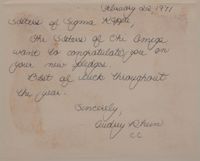 February 22, 1971
Sisters of Sigma Kappa,
The Sisters of Chi Omega
want to congratulate you on
your new pledges.
Best of luck throughout
the year.
Sincerely,
Audrey